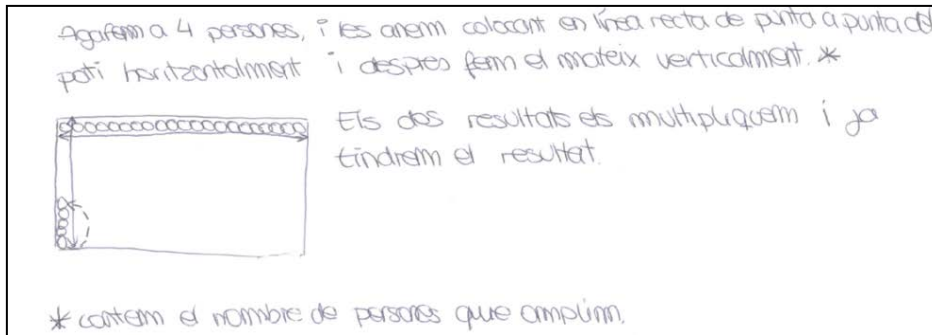 Agafem a 4 persones, i les anem colocant en línea recta de punta a punta del
pati horitzontalment i despres fem el mateix verticalment. *
Els dos resultats els multipliquem i ja
tindrem el resultat.
* contem el nombre de persones que omplim.